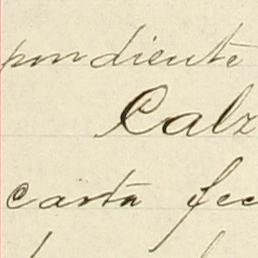 pondiente
Calz
carta fec